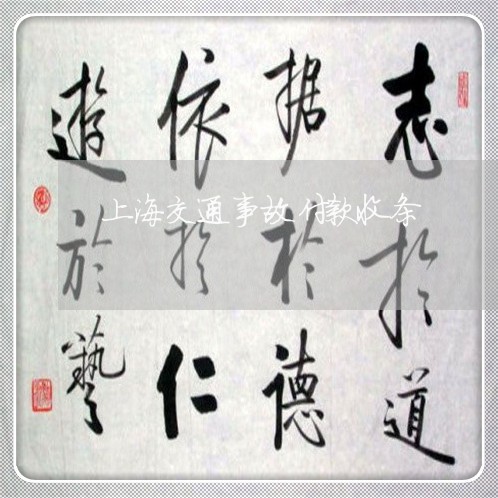 志扵道
据扵德
依扵仁
遊於藝
上海交通事故付款收条